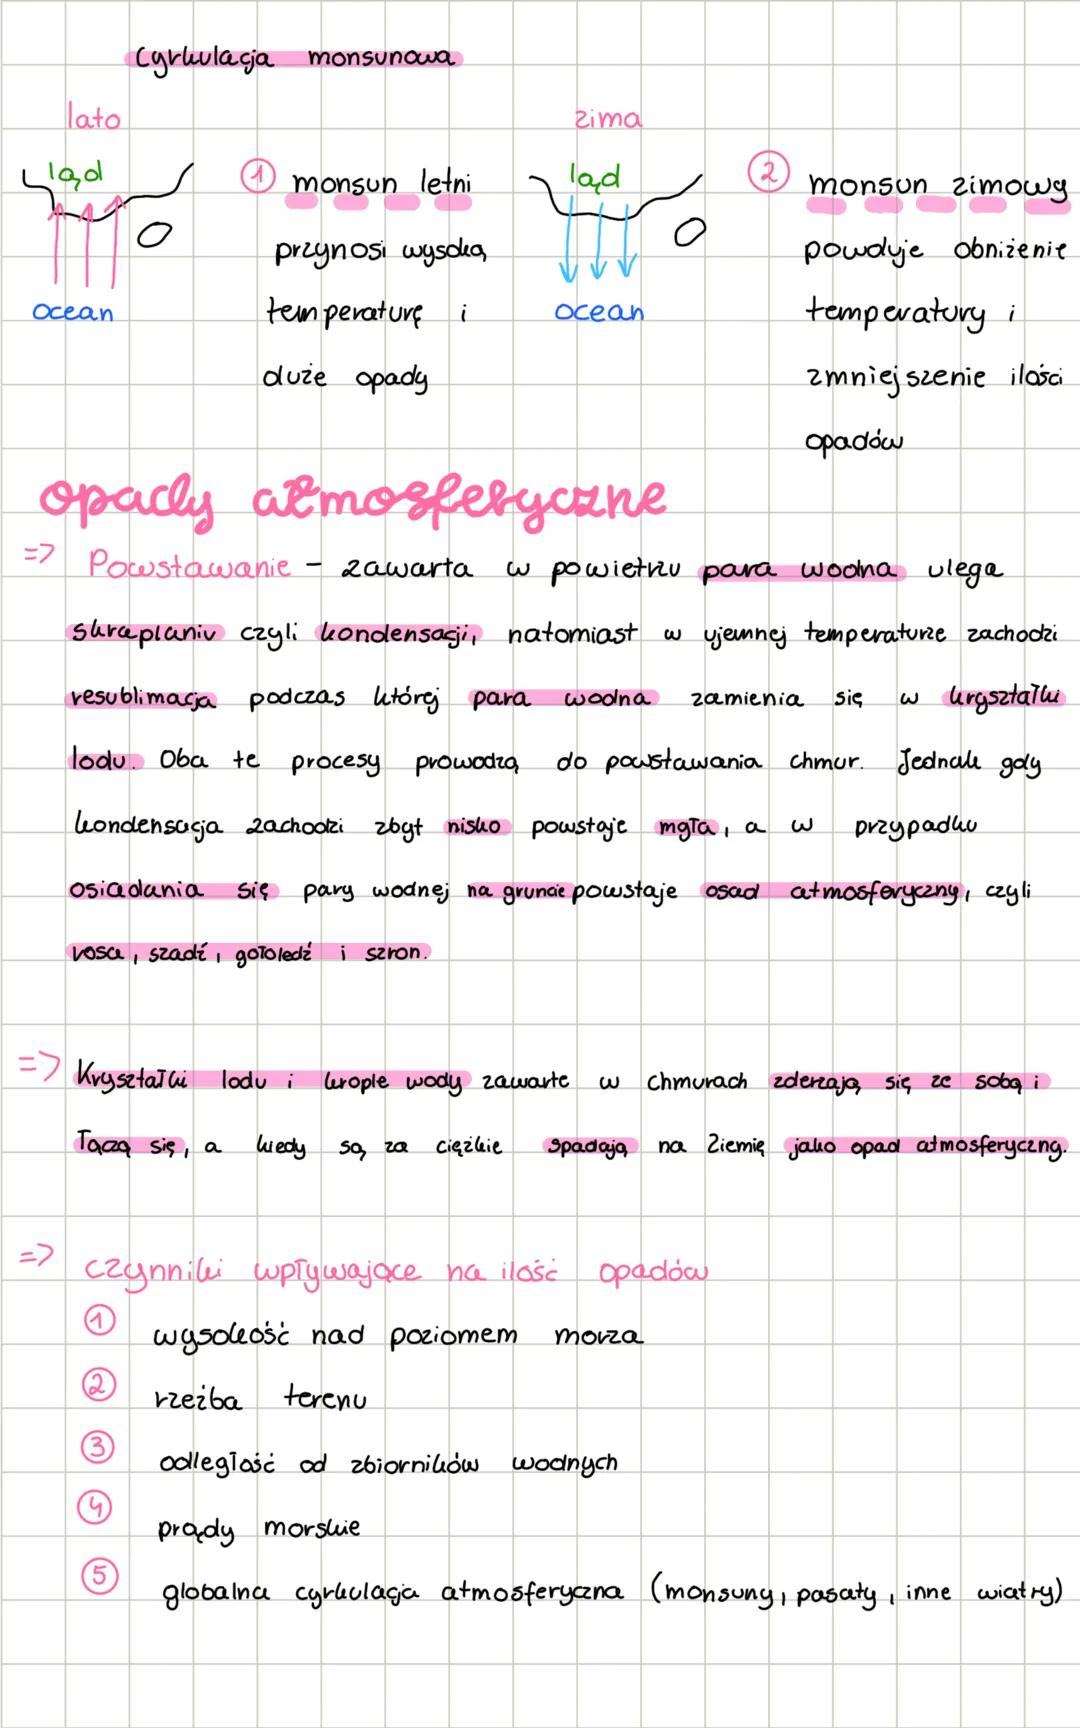 Cyrkulacja monsunowa
lato
zima
ląd
① monsun letni
przynosi wysoką
temperaturę i
duże opady
ocean
ląd
② monsun zimowy
powduje obniżenie
temperatury i
zmniejszenie ilości
opadów
ocean
opady atmosferyczne
=> Powstawanie – zawarta w powietrzu para wodna ulega
skraplaniu czyli kondensacji, natomiast w ujemnej temperaturze zachodzi
resublimacja podczas której para wodna zamienia się w kryształki
lodu. Oba te procesy prowadzą do powstawania chmur. Jednak gdy
kondensacja zachodzi zbyt nisko powstaje mgła, a w przypadku
osiadania się pary wodnej na gruncie powstaje osad atmosferyczny, czyli
rosa, szadź, gołoledź i szron.
=> Kryształki lodu i krople wody zawarte w chmurach zderzają się ze sobą i
łączą się, a kiedy są za ciężkie spadają na Ziemię jako opad atmosferyczny.
=> czynniki wpływające na ilość opadów
① wysokość nad poziomem morza
② rzeźba terenu
③ odległość od zbiorników wodnych
④ prądy morskie
⑤ globalna cyrkulacja atmosferyczna (monsuny, pasaty, inne wiatry)